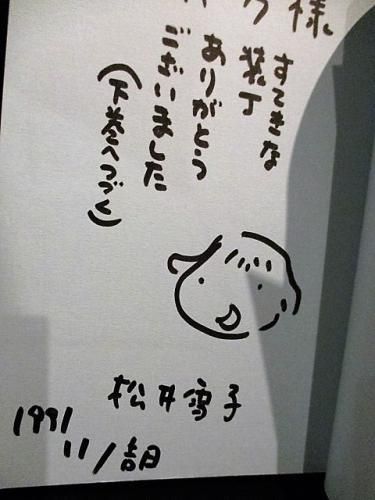 様
すてきな
装丁
ありがとう
ございました
(下巻へつづく)
松井雪子
1991
11/吉日